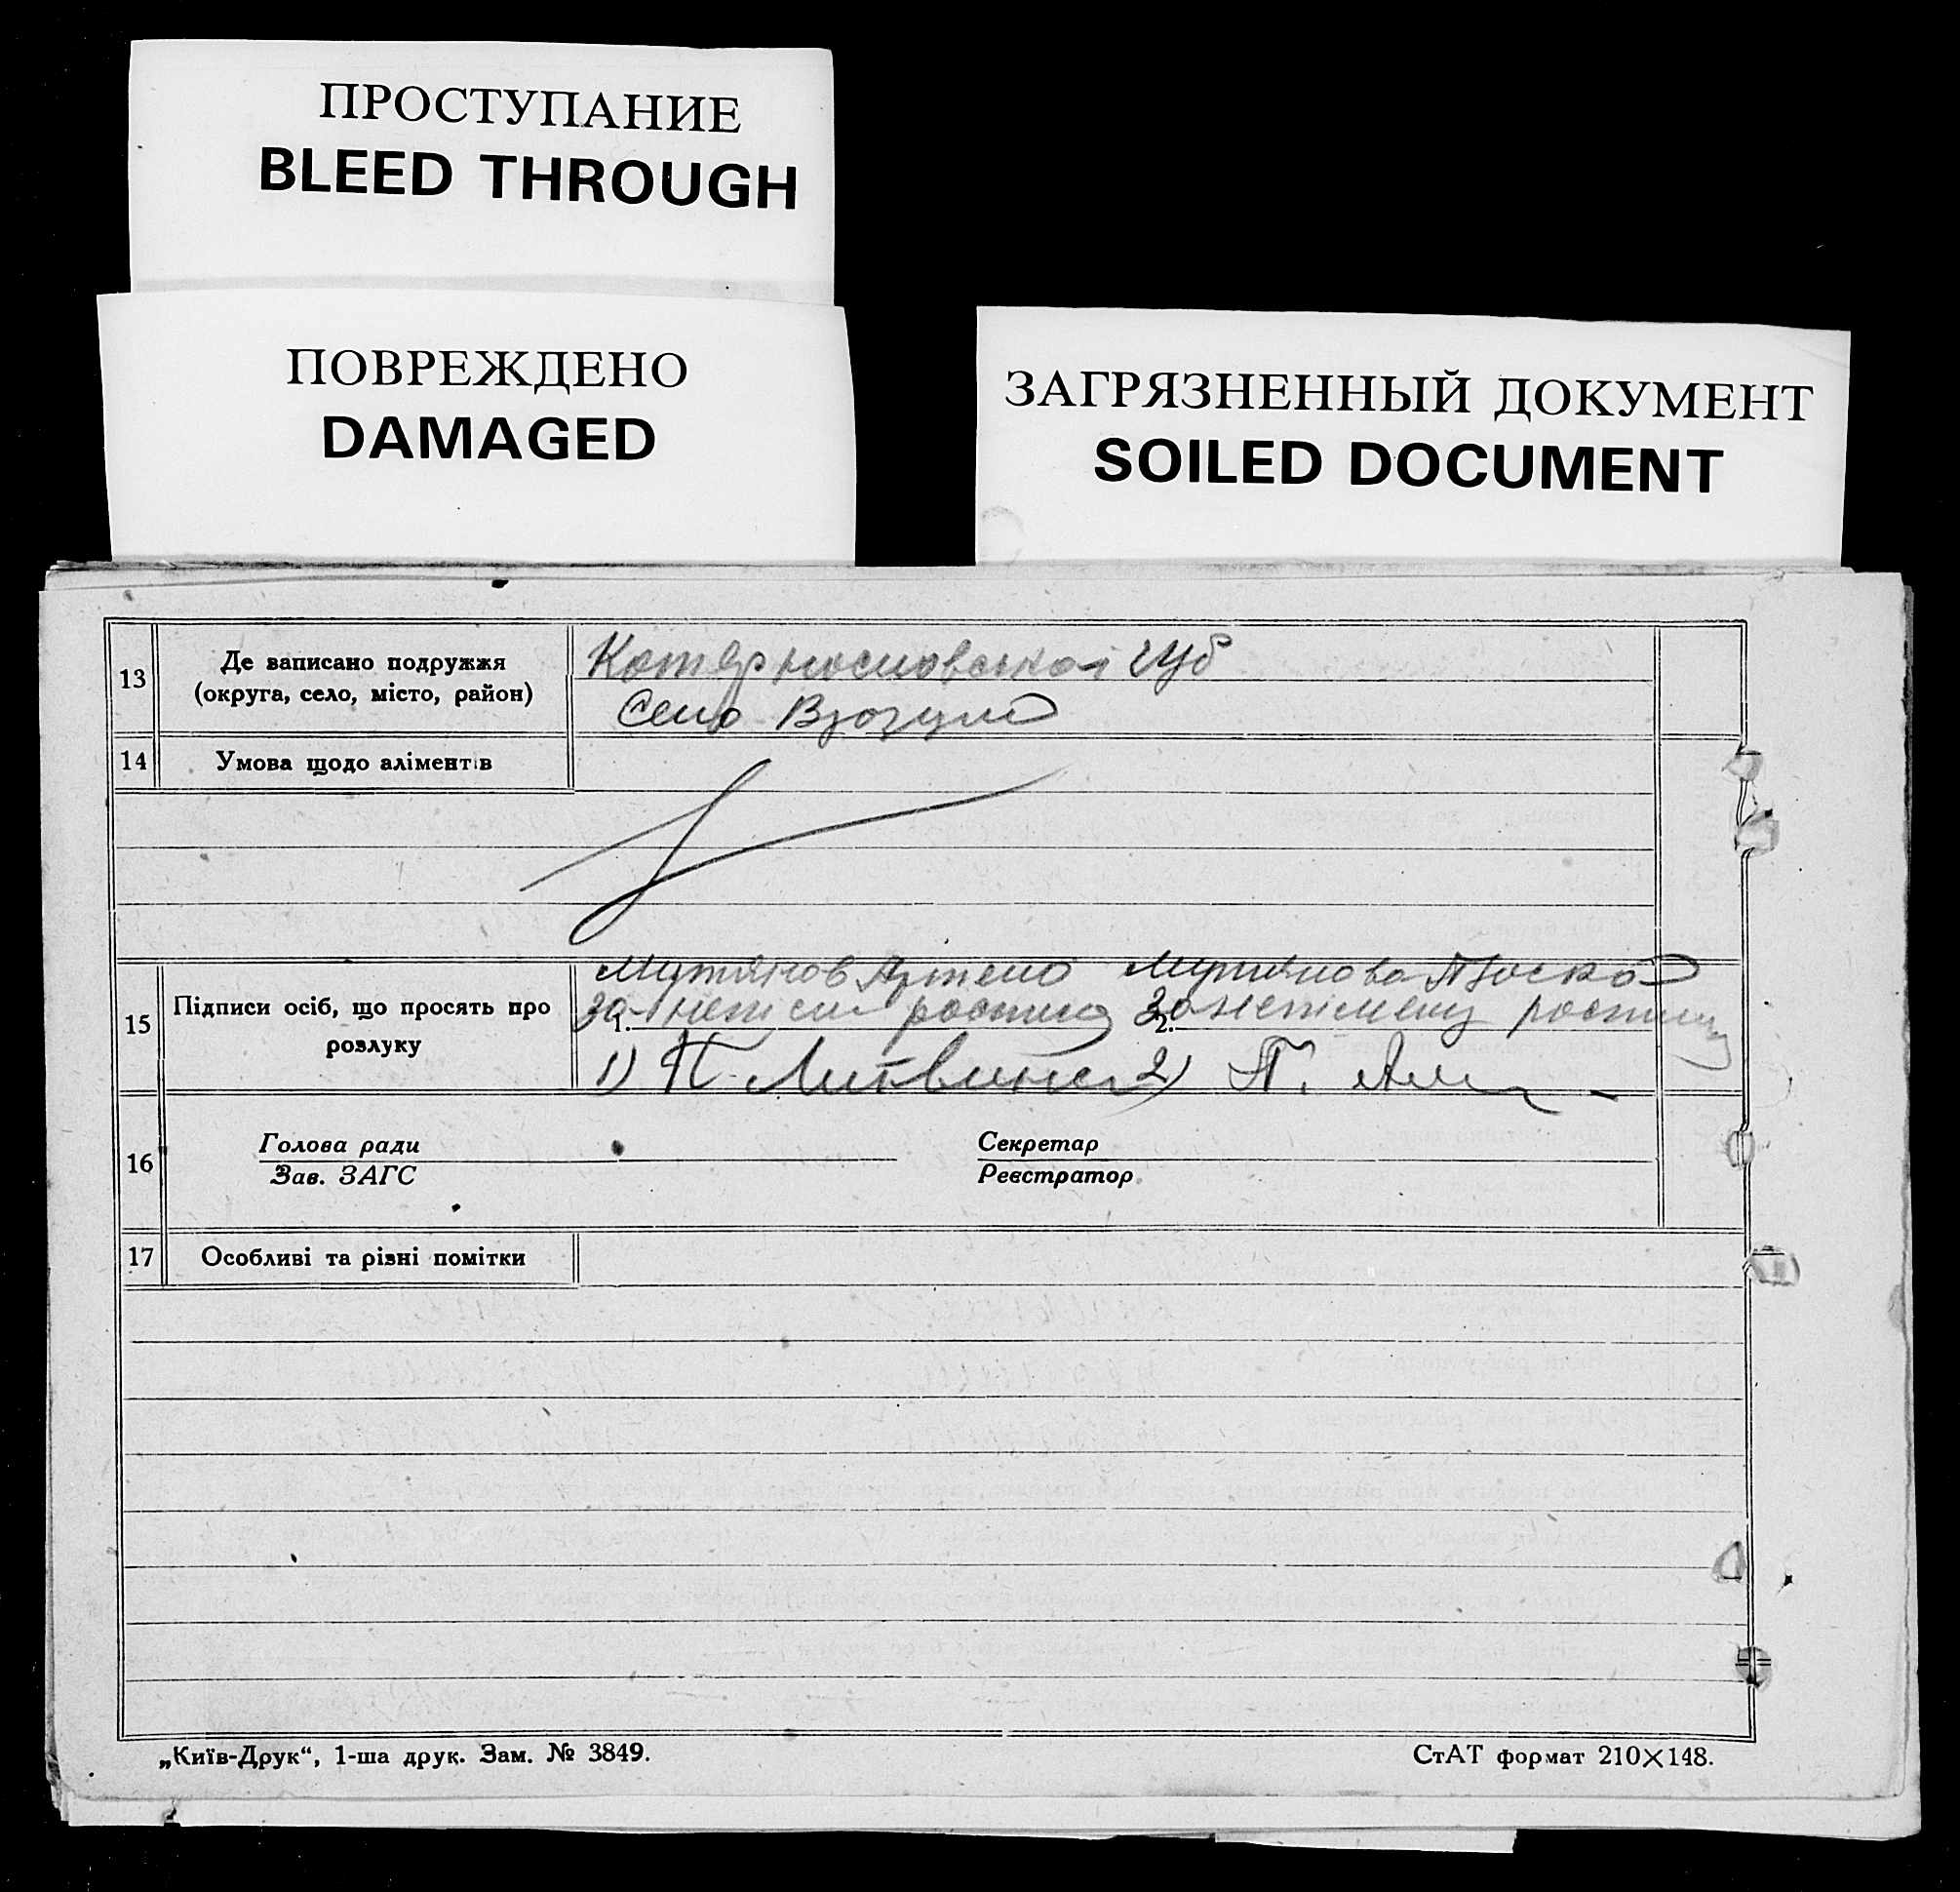 ПРОСТУПАНИЕ
BLEED THROUGH
ПОВРЕЖДЕНО
DAMAGED
ЗАГРЯЗНЕННЫЙ ДОКУМЕНТ
SOILED DOCUMENT
13
Де записано подружжя
(округа, село, місто, район)
губ
Село
14
Умова щодо аліментів
15
Підписи осіб, що просять про
розлуку
1.
2.
1) П. Литвин
2) П.
16
Голова ради
Зав. ЗАГС
Секретар
Реєстратор
17
Особливі та різні помітки
„Київ-Друк“, 1-ша друк. Зам. № 3849.
СтАТ формат 210×148.